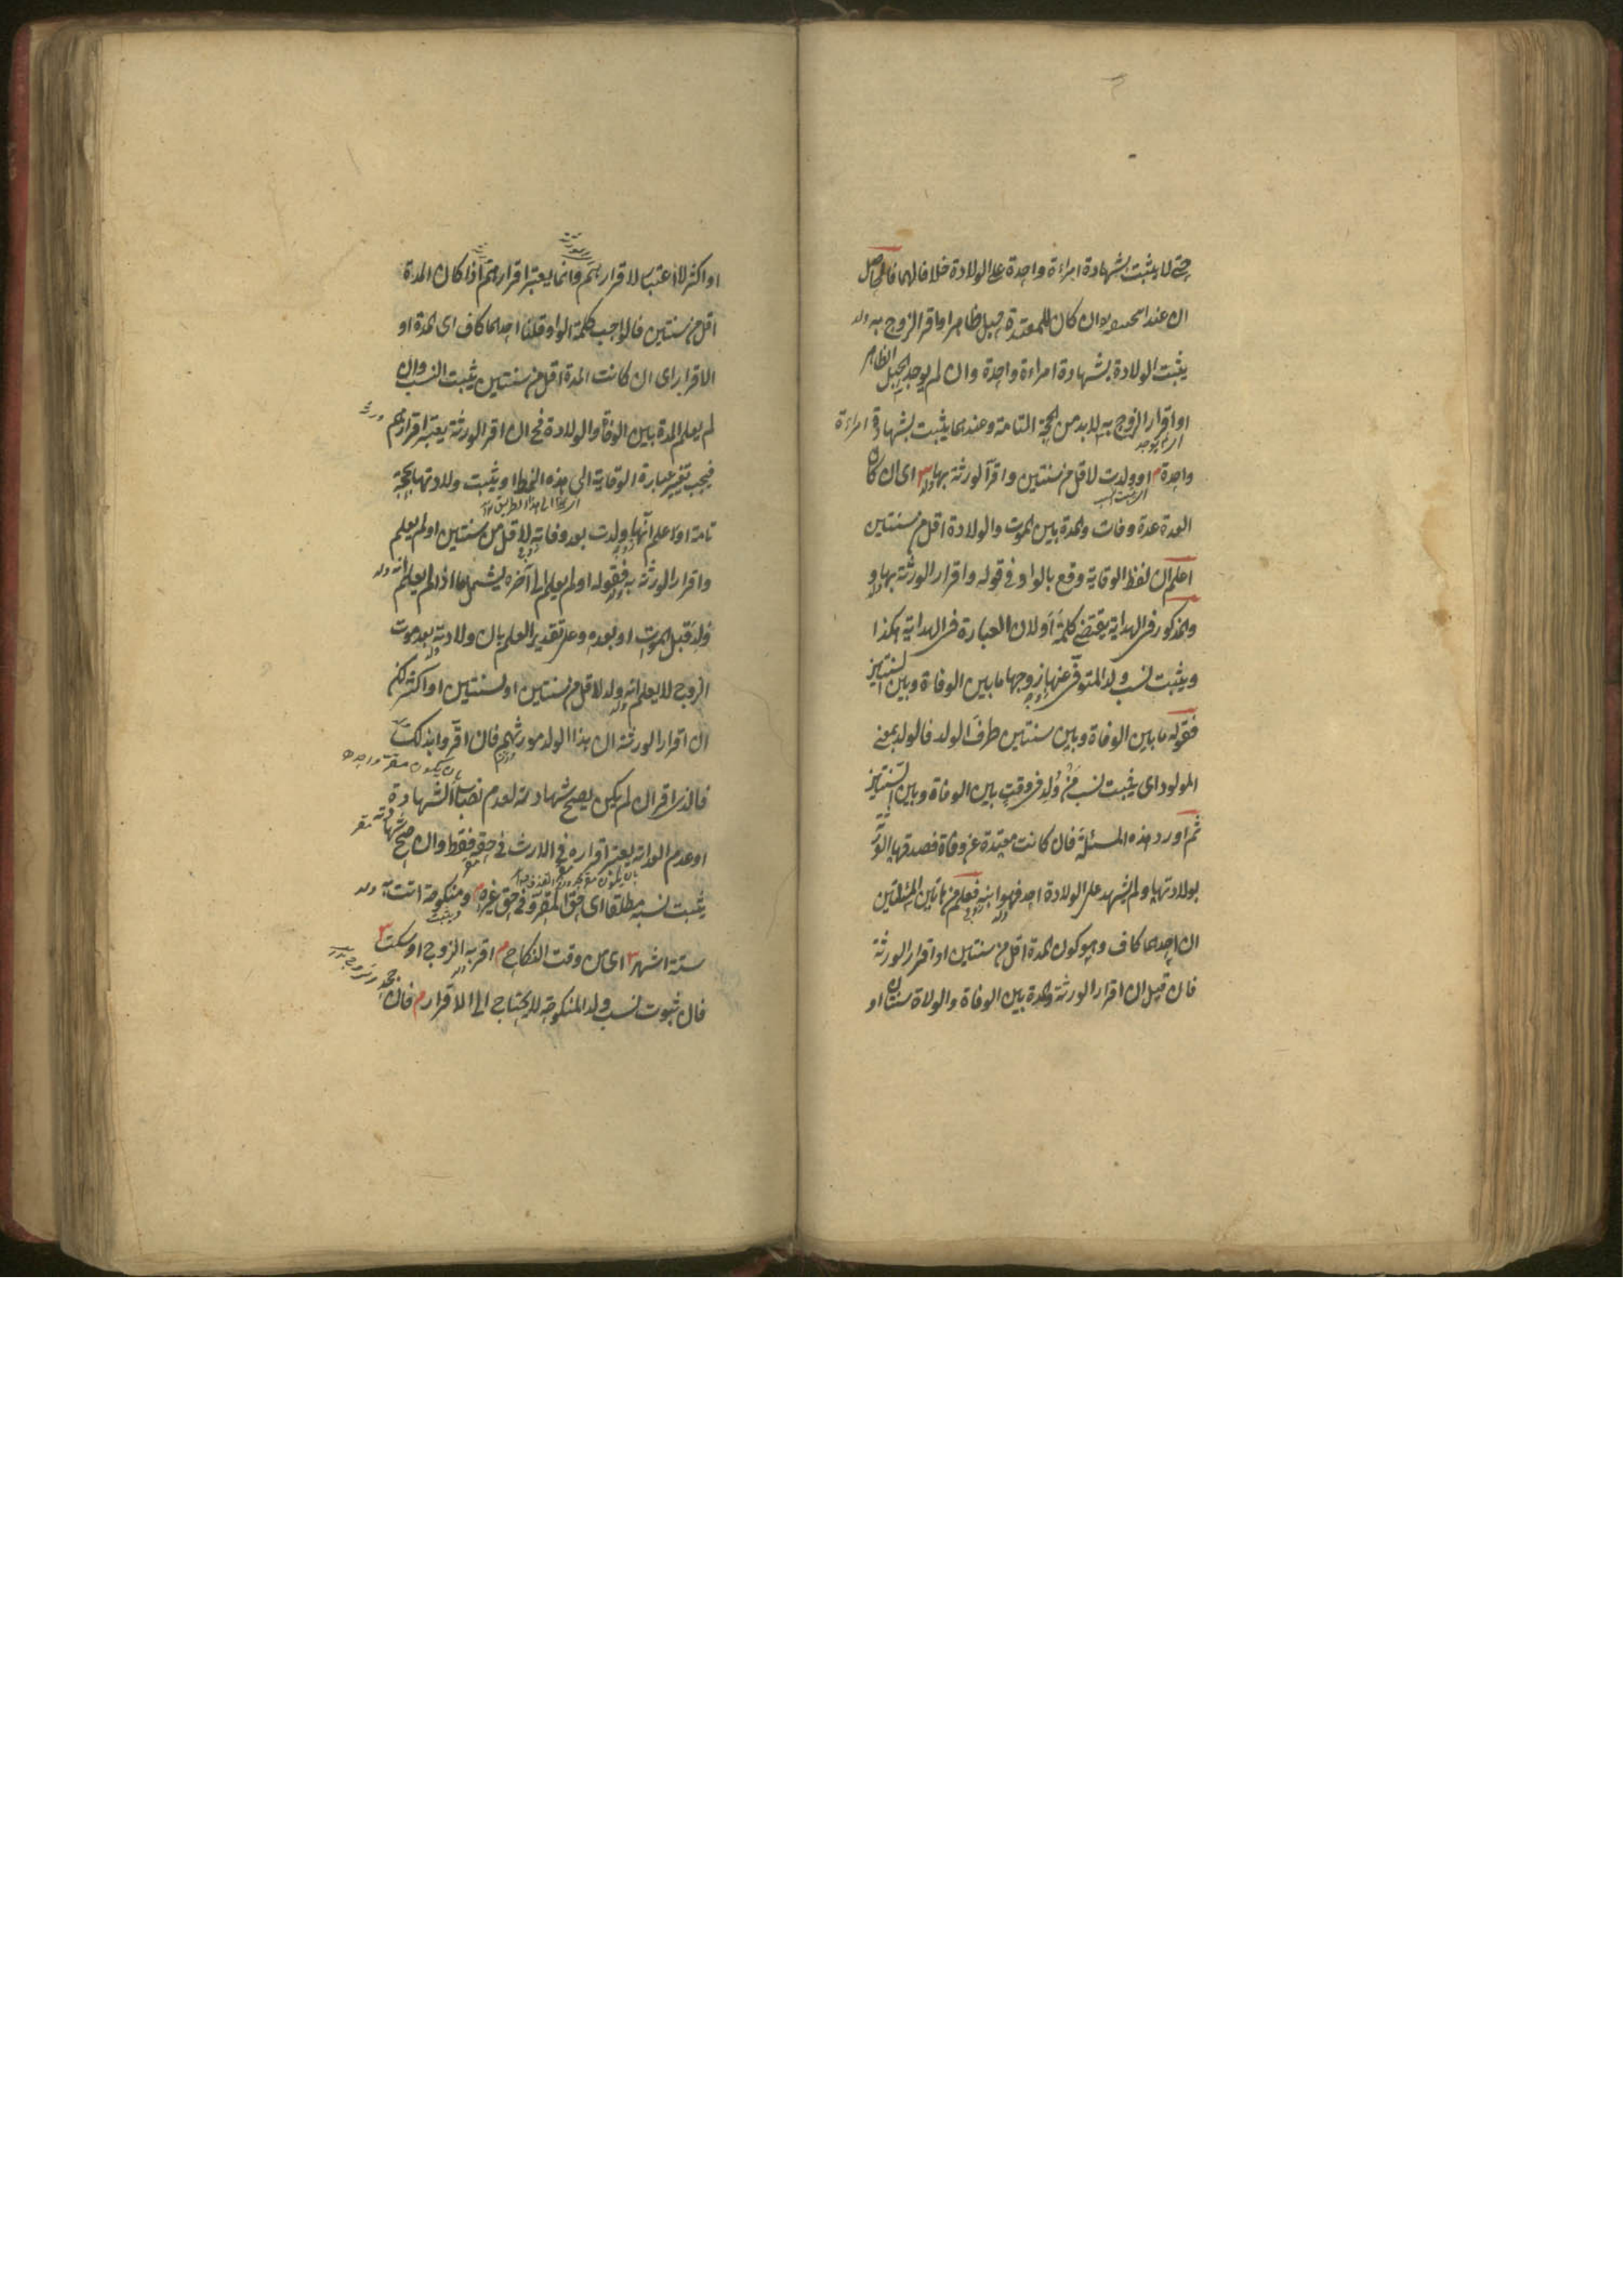 حتى لا يثبت بشهادة امراءة واحدة على الولادة خلافا لهما فالحاصل
ان عند ان كان للمعتدة حبل ظاهر او اقر الزوج به
يثبت الولادة بشهادة امراءة واحدة وان لم يوجد الحبل الظاهر
او اقرار الزوج به لا بد من الحجة التامة وعندهما يثبت بشهادة امراءة
واحدة م او ولدت لاقل من سنتين واقر الورثة بها اى ان كان
العدة عدة وفات والمدة بين الموت والولادة اقل من سنتين
اعلم ان لفظ الوقاية وقع بالواو فى قوله واقرار الورثة بها و
والمذكور فى الهداية يقتضى كلمة أو لان العبارة فى الهداية هكذا
ويثبت نسب ولد المتوفى عنها زوجها ما بين الوفاة وبين السنتين
فقوله ما بين الوفاة وبين سنتين ظرف الولد فالولد بمعنى
المولود اى يثبت نسب من ولد فى وقت بين الوفاة وبين السنتين
ثم اورد هذه المسئلة فان كانت معتدة عن وفاة فصدقها الورثة
بولادتها ولم يشهد على الولادة احد فهو ابنه فعلم من هاتين المسئلتين
ان احدهما كاف وهو كون المدة اقل من سنتين او اقرار الورثة
فان قيل ان اقرار الورثة والمدة بين الوفاة والولاة سنتان او
او اكثر لا اعتبار لاقرارهم وانما يعتبر اقرارهم اذا كان المدة
اقل من سنتين فالواجب كلمة الواو قلنا احدهما كاف اى المدة او
الاقرار اى ان كانت المدة اقل من سنتين يثبت النسب وان
لم يعلم المدة بين الوفاة والولادة فح ان اقر الورثة يعتبر اقرارهم
فيجب تغيير عبارة الوقاية الى هذه النمط او يثبت ولادتها بحجة
تامة او علم انها ولدت بعد وفاته لاقل من سنتين او لم يعلم
واقرار الورثة به فقوله او لم يعلم الى آخره يشمل ما اذا لم يعلم انه
ولد قبل الموت او بعده وعلى تقدير العلم بان ولادته بعد موت
الزوج لا يعلم انه ولد لاقل من سنتين او لسنتين او اكثر لكن
ان اقرار الورثة ان هذا الولد مورثهم فان اقروا بذلك
بان يكون مقر واحد
فالذى اقر ان لم يكن يصح شهادته لعدم نصاب الشهادة
او عدم العدالة يعتبر اقراره فى الارث فى حقه فقط وان صح شهادته
يثبت نسبه مطلقا اى حق المقر وفى حق غيره م ومنكوحة اتت به
ستة اشهر اى من وقت النكاح م اقر به الزوج او سكت
فان ثبوت نسب ولد المنكوحة لا يحتاج الى الاقرار م فان جحد